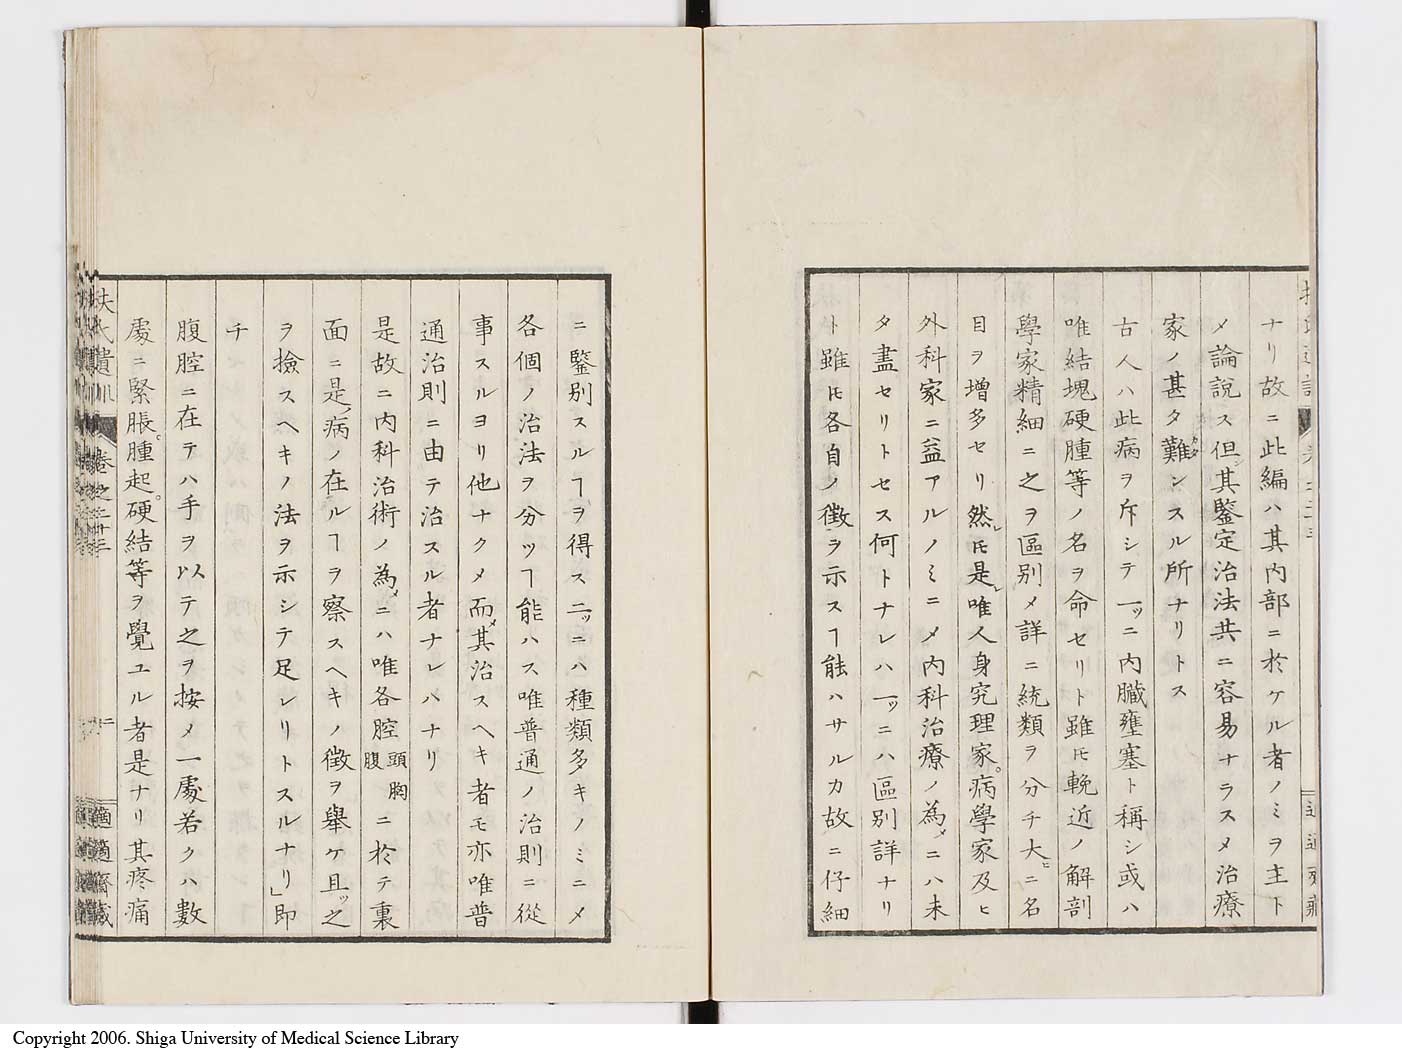 ナリ故ニ此編ハ其内部ニ於ケル者ノミヲ主ト
メ論説ス但シ其鑒定治法共ニ容易ナラスメ治療
家ノ甚タ難カタンスル所ナリトス
古人ハ此病ヲ斥シテ一ッニ内臓壅塞ト稱シ或ハ
唯結塊硬腫等ノ名ヲ命セリト雖𪜈輓近ノ解剖
學家精細ニ之ヲ區別メ詳ニ統類ヲ分チ大ヒニ名
目ヲ增多セリ然レ𪜈是レ唯人身究理家。病學家及ヒ
外科家ニ益アルノミニメ内科治療ノ為メニハ未
タ盡セリトセス何トナレハ一ッニハ區別詳ナリ
ト雖𪜈各自ノ徴ヲ示スヿ能ハサルカ故ニ仔細
ニ鑒別スルヿヲ得ス二ッニハ種類多キノミニメ
各個ノ治法ヲ分ツヿ能ハス唯普通ノ治則ニ從
事スルヨリ他ナクメ而メ其治スヘキ者モ亦唯普
通治則ニ由テ治スル者ナレハナリ
是故ニ内科治術ノ為メニハ唯各腔頭胸腹ニ於テ裏
面ニ是ノ病ノ在ルヿヲ察スヘキノ徴ヲ舉ケ且ッ之
ヲ撿スヘキノ法ヲ示シテ足レリトスルナリ」即
チ
腹腔ニ在テハ手ヲ以テ之ヲ按メ一處若クハ數
處ニ緊脹。腫起。硬結等ヲ覺ユル者是ナリ其疼痛
扶氏遺訓
卷之二十三
二
適適齋藏